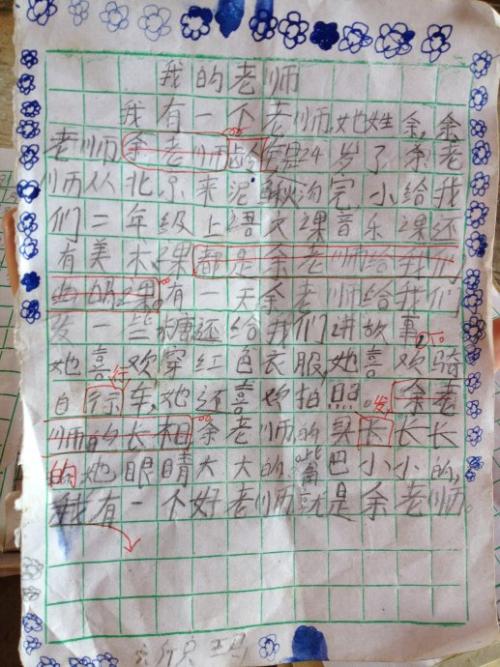 我的老师
我有一个老师,她姓余,余
老师余老师今年24岁了余老
师从北京来泥鳅沟完小给我
们二年级上语文课音乐课还
有美术课都是余老师给我们
有一天余老师给我们
发一些糖还给我们讲故事,
她喜欢穿红色衣服,她喜欢骑
自行车,她还喜欢拍照。余老
师的长相余老师的头发长长
的她眼睛大大的嘴巴小小的,
我有一个好老师就是余老师。